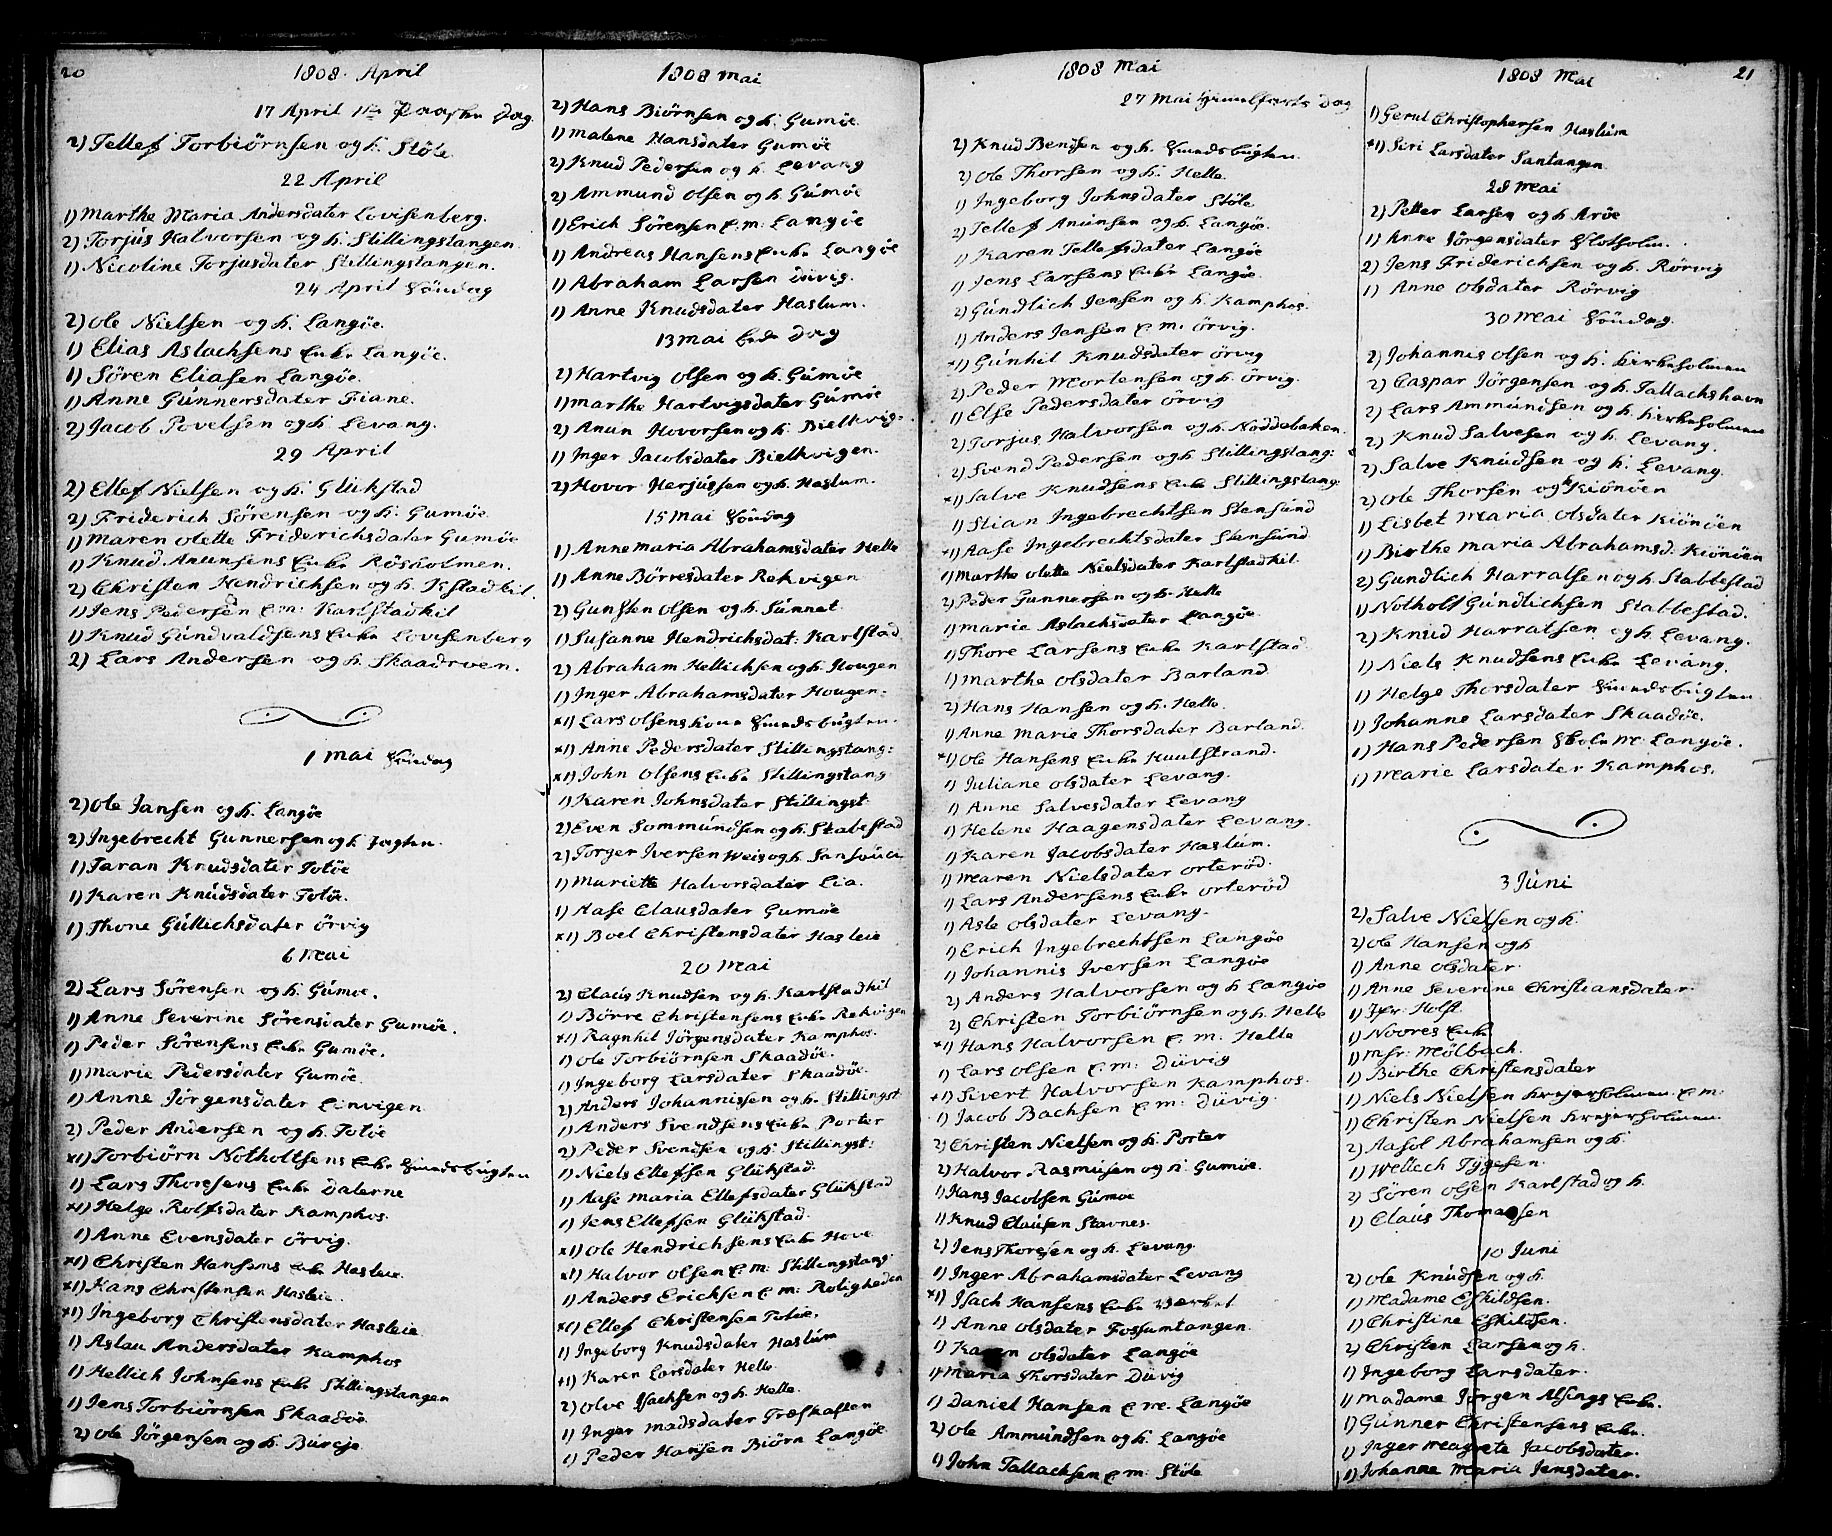 20
1808. April
17 April 1ste Paaske Dag
2) Tellef Torbiörnsen og h. Stöle
22 April
1) Marthe Maria Andersdater Lovisenberg.
2) Torjus Halvorsen og h. Stillingstangen
1) Nicoline Torjusdater Stillingstangen.
24 April Söndag
2) Ole Nielsen og h. Langöe.
1) Elias Aslachsens Enke Langöe.
1) Sören Eliasen Langöe.
1) Anne Gunnersdater Fiane.
2) Jacob Povelsen og h. Levang.
29 April
2) Ellef Nielsen og h. Glükstad
2) Friderich Sörensen og h. Gumöe
1) Maren Olette Friderichsdater Gumöe
1) Knud Anunsens Enke Rösholmen.
2) Christen Hendrichsen og h. Kstadkil.
1) Jens Pedersen E: m: Karlstadkil
1) Knud Gundvaldsens Enke Lovisenberg
2) Lars Andersen og h. Skaadrven.
1 Mai Söndag
2) Ole Jansen og h. Langöe
2) Ingebrecht Gunnersen og h. Jagten.
1) Taran Knudsdater Totöe
1) Karen Knudsdater Totöe.
1) Thone Güllichsdater örvig
6 Mai
2) Lars Sörensen og h. Gumöe.
1) Anne Severine Sörensdater Gumöe.
1) Peder Sörensens Enke Gumöe.
1) Marie Pedersdater Gumöe
1) Anne Jörgensdater Linvigen
2) Peder Andersen og h. Totöe
*1) Torbiörn Notholtsens Enke Smedsbugten
1) Lars Thoresens Enke Dalerne
*1) Helge Rolfsdater Kamphos.
1) Anne Evensdater örvig.
*1) Christen Hansens Enke Hasleie.
*1) Hans Christensen Hasleie.
*1) Ingeborg Christensdater Hasleie
1) Aslau Andersdater Kamphos
1) Hellich Johnsens Enke Stillingstangen
1) Jens Torbiörnsen Skaadöe
2) Ole Jörgensen og h. Bureje
1808 Mai
2) Hans Biörnsen og h. Gumöe
1) Malene Hansdater Gumöe
2) Knud Pedersen og h. Levang
2) Ammund Olsen og h. Gumöe
1) Erich Sörensen E. m: Langöe
1) Andreas Hansens Enke Langöe
1) Abraham Larsen Düvig.
1) Anne Knudsdater Haslum.
13 Mai Bede Dag
2) Hartvig Olsen og h. Gumöe
1) Marthe Hartvigsdater Gumöe
2) Anun Hovorsen og h. Bielkvig:
1) Inger Jacobsdater Bielkvigen.
2) Hovor Herjussen og h. Haslum.
15 Mai Söndag
1) Anne Maria Abrahamsdater Helle
1) Anne Börresdater Rekvigen
2) Gunsten Olsen og h. Sünnet.
1) Susanne Hendrichsdat: Karlstad
2) Abraham Hellichsen og h. Hougen
1) Inger Abrahamsdater Hougen:
*1) Lars Olsens kone Smedsbugten.
*1) Anne Pedersdater Stillingstang:
*1) John Olsens Enke Stillingstang
1) Karen Johnsdater Stillingst:
2) Even Sommundsen og h. Stabestad
2) Torger Iversen Weis og h. Sansouci
1) Muriette Halvorsdater Lia.
1) Aase Clausdater Gumöe
*1) Boel Christensdater Hasleie
20 Mai
2) Claus Knudsen og h. Karlstadkil
1) Börre Christensens Enke Rekvigen
*1) Ragnhil Jörgensdater Kamphos.
1) Ole Torbiörnsen Skaadöe.
1) Ingeborg Larsdater Skaadöe.
2) Anders Johannissen og h. Stillingst
1) Anders Svendsens Enke Porter
2) Peder Svendsen og h. Stillingst:
1) Niels Ellefsen Glükstad
1) Aase Maria Ellefsdater Glükstad
1) Jens Ellefsen Glükstad.
*1) Ole Hendrichsens Enke Hove
*1) Halvor Olsen E. m: Stillingstang:
1) Anders Ericksen E: m: Roligheden
*1) Ellef Christensen Totöe.
1) Ingeborg Knudsdater Haslum
*1) Karen Larsdater Helle
2) Olve Isachsen og h. Helle.
1) Inger Madsdater Træskaften
1) Peder Hansen Biörn Langöe
1808 Mai
27 Mai Himelfarts Dag
2) Knud Bendsen og h. Smedsbugten.
2) Ole Thorsen og h. Helle.
1) Ingeborg Johnsdater Stöle
2) Tellef Anunsen og h. Langöe.
1) Karen Tellefsdater Langöe
1) Jens Larsens Enke Langöe.
2) Gundlich Jensen og h. Kamphos.
1) Anders Jensen E: m: örvig.
*1) Gunhil Knudsdater örvig
2) Peder Mortensen og h. örvig.
1) Else Pedersdater örvig
2) Torjus Halvorsen og h. Noddebaken.
2) Svend Pedersen og h. Stillingstang:
*1) Salve Knudsens Enke Stillingstang:
1) Stian Ingebrechtsen Stensund
*1) Aase Ingebrechtsdater Stensund
1) Marthe Olette Nielsdater Karlstadkil.
2) Peder Gunnersen og h. Helle
1) Marie Aslachsdater Langöe.
1) Thore Larsens Enke Karlstad
1) Marthe Olsdater Barland
2) Hans Hansen og h. Helle.
1) Anne Marie Thorsdater Barland.
*1) Ole Hansens Enke Kuulstrand.
1) Juliane Olsdater Levang.
1) Anne Salvesdater Levang
1) Helene Haagensdater Levang.
1) Karen Jacobsdater Haslum.
1) Maren Nielsdater orteröd.
1) Lars Andersens Enke orteröd
1) Asle Olsdater Levang.
1) Erich Ingebrechtsen Langöe
1) Johannis Iversen Langöe
2) Anders Halvorsen og h. Langöe
2) Christen Torbiörnsen og h. Helle
*1) Hans Halvorsen E. m. Helle
1) Lars Olsen E: m: Düvig
*1) Sivert Halvorsen Kamphos.
1) Jacob Bachsen E: m: Düvig.
2) Christen Nielsen og h. Porter
2) Halvor Rasmusen og h. Gumöe.
1) Hans Jacobsen Gümoe
1) Knud Clausen Stavnes.
2) Jens Thoresen og h. Levang.
1) Inger Abrahamsdater Levang
*1) Isach Hansens Enke Værket
1) Anne Olsdater Fossumtangen.
1) Karen Olsdater Langöe
1) Maria Thorsdater Düvig
1) Daniel Hansen E. m. Langöe
2) Ole Ammundsen og h. Langöe
1) John Tallachsen E: m: Stöle
1808 Mai
21
1) Gerut Christophersen Haslum
*1) Siri Larsdater Santangen
28 Mai
2) Petter Larsen og h Aröe
1) Anne Jörgensdater Slotholm.
2) Jens Friderichsen og h. Rörvig
1) Anne Olsdater Rörvig
30 Mai Söndag.
2) Johannis Olsen og h. Kirkeholmen
2) Caspar Jörgensen og h. Tallachshavn
2) Lars Ammundsen og h. Kirkeholmen
2) Knud Salvesen og h. Levang.
2) Salve Knudsen og h. Levang.
2) Ole Thorsen og h Kiönöen
1) Lisbet Maria Olsdater Kiönöen
1) Birthe Maria Abrahamsd. Kiönöen
2) Gundlich Harralsen og h. Stabbestad
1) Notholt Gundlichsen Stabbestad.
2) Knud Harralsen og h Levang.
1) Niels Knudsens Enke Levang.
1) Helge Thorsdater Smedsbugten
1) Johanne Larsdater Skaadöe.
1) Hans Pedersen Skole M: Langöe.
1) Marie Larsdater Kamphos.
3 Juni
2) Salve Nielsen og h.
2) Ole Hansen og h
1) Anne Olsdater.
1) Anne Severine Christiansdater.
1) Jfr: Holst
1) Noores Enke
1) Mfr: Mölbach.
1) Birthe Christensdater
1) Niels Nielsen Krejerholmen E. m:
1) Christen Nielsen Krejerholmen.
2) Aasol Abrahamsen og h
1) Wellech Tygesen.
2) Sören Olsen Karlstad og h.
1) Claus Thomassen
10 Juni
2) Ole Knudsen og h.
1) Madame Eskildsen.
1) Christine Eskildsen.
2) Christen Larsen og h.
1) Ingeborg Larsdater.
1) Madame Jörgen Alsings Enke.
1) Gunner Christensens Enke.
1) Inger Magrete Jacobsdater.
1) Johanne Maria Jensdater.